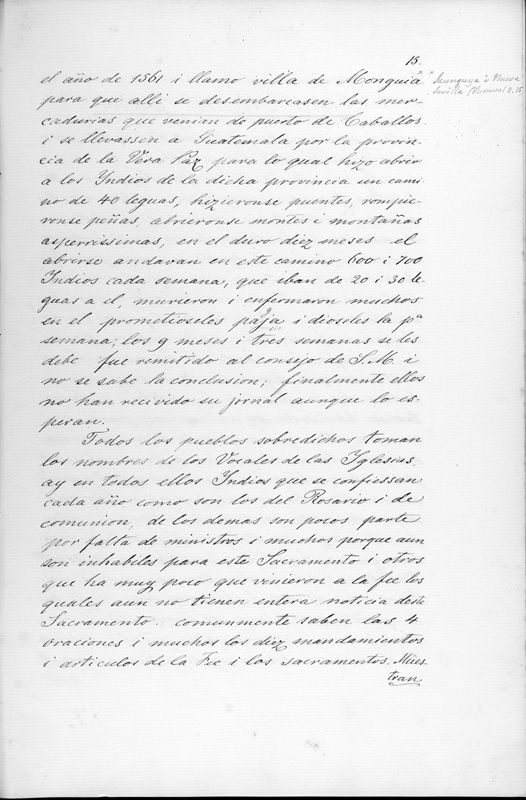 15.
el año de 1561 i llamo villa de Monguia
"Munguya ò Nueva
Sevilla
para que alli se desembarcasen las mer-
cadurias que venian de puerto de Caballos
i se llevassen a Guatemala por la provin-
cia de la Vera Paz para lo qual hizo abrir
a los Yndios de la dicha provincia un cami
no de 40 leguas, hizieronse puentes, rompie-
ronse peñas, abrieronse montes i montañas
asperrissimas, en el duro diez meses el
abrirse andavan en este camino 600 i 700
Indios cada semana, que iban de 20 i 30 le-
guas a el, murieron i enfermaron muchos
en el prometioseles paja i dioseles la pa
semana; los 9 meses i tres semanas se les
debe fue remitido al consejo de S. M. i
no se sabe la conclusion; finalmente ellos
no han recivido su jornal aunque lo es-
peran.
Todos los pueblos sobredichos toman
los nombres de los Vocales de las Yglesias,
ay en todos ellos Indios que se confiessan
cada año como son los del Rosario i de
comunion, de los demas son pocos parte
por falta de ministros i muchos porque aun
son inhabiles para este Sacramento i otros
que ha muy poco que vinieron a la fee los
quales aun no tienen entera noticia deste
Sacramento: comunmente saben las 4
oraciones i muchos los diez mandamientos
i articulos de la Fee i los sacramentos. Mues
tran